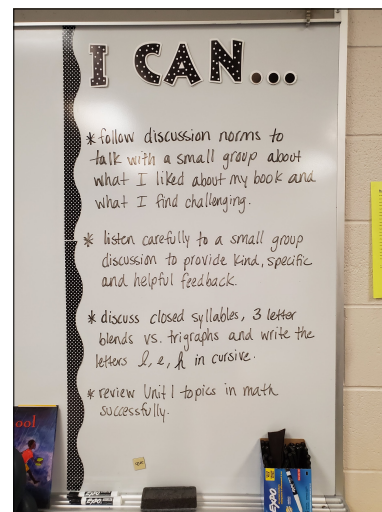 I CAN...
* follow discussion norms to
talk with a small group about
what I liked about my book and
what I find challenging.
* listen carefully to a small group
discussion to provide kind, specific
and helpful feedback.
* discuss closed syllables, 3 letter
blends vs. trigraphs and write the
letters l, e, h in cursive.
* review Unit 1 topics in math
successfully.
ool
EXPO